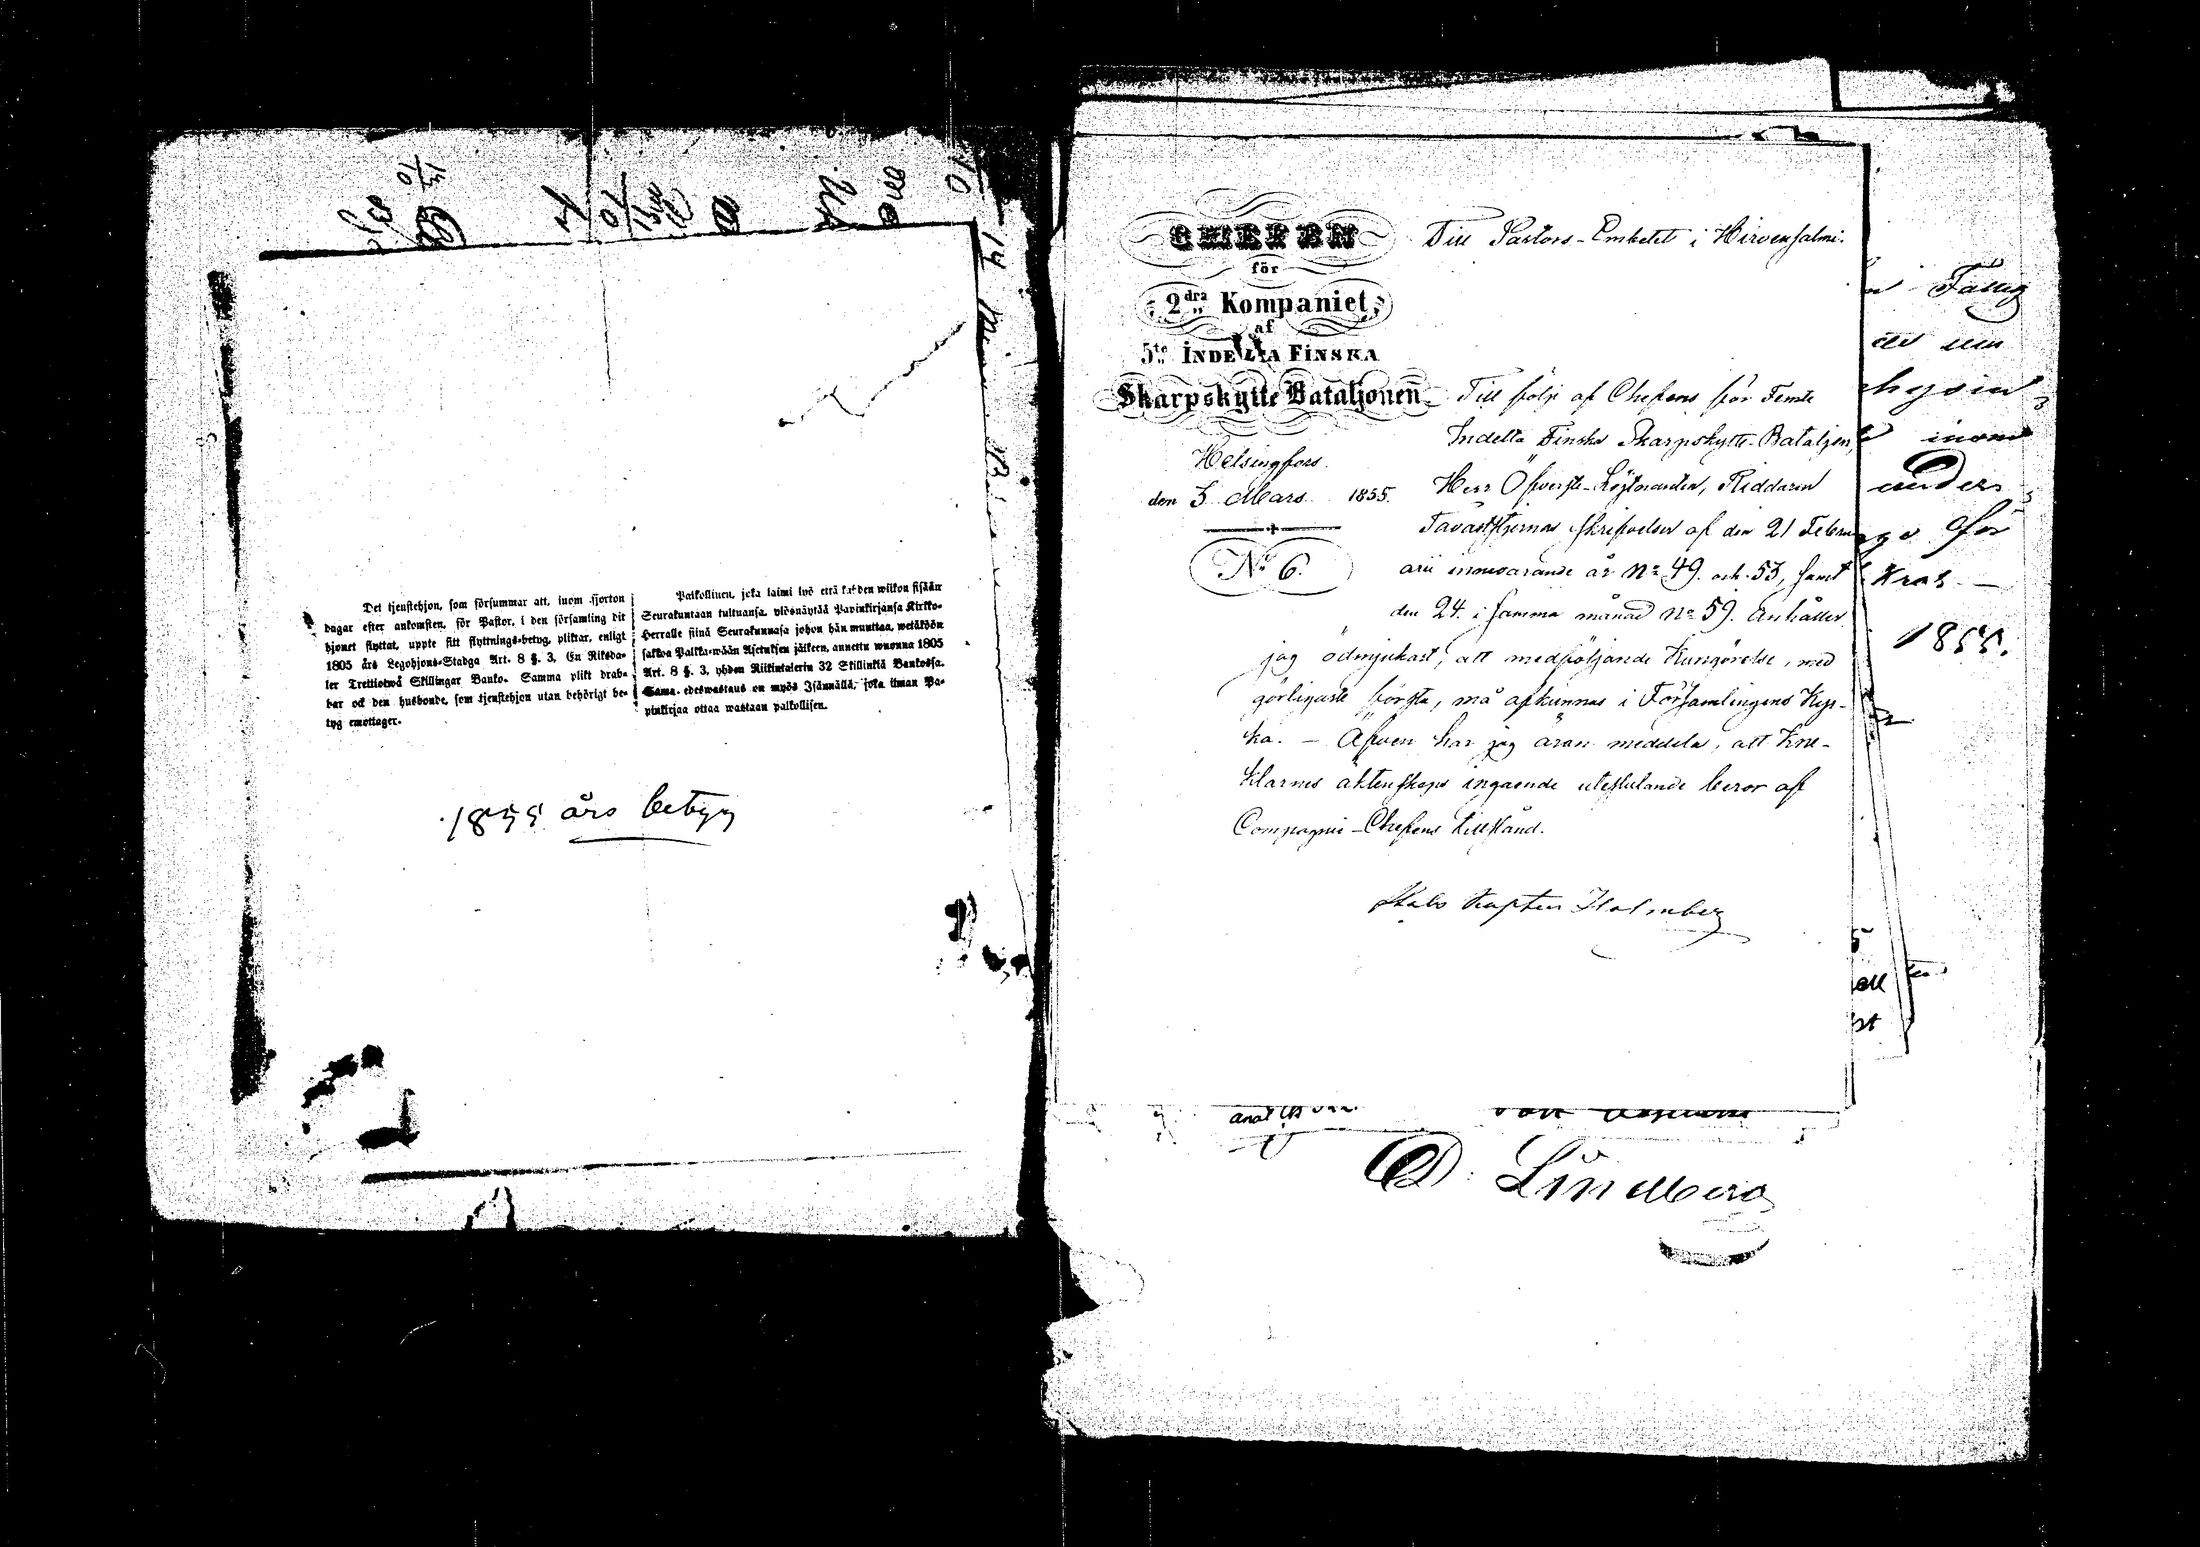 Det tjenstehjon, som försummar att, inom fjorton
dagar efter ankomsten, för Pastor, i den församling dit
hjonet flyttat, uppte sitt flyttnings-betyg, pliktar, enligt
1805 års Legohjons-Stadga Art. 8 §. 3, En Riksda-
ler Trettiotwå Skillingar Banko. Samma plikt drab-
bar ock den husbonde, som tjenstehjon utan behörigt be-
tyg emottager.
Palkollinen, joka laimi lyö että kahden wiikon sisään
Seurakuntaan tultuansa, ylösnäytää Papinkirjansa Kirkko-
Herralle siinä Seurakunnasa johon hän muuttaa, wetäköön
sakkoa Palkka-wään Asetuksen jälkeen, annettu wuonna 1805
Art. 8 §. 3, yhden Riikintalerin 32 Skillinkiä Bankossa.
Sama edeswastaus on myös Isännällä, joka ilman Pa-
pinkirjaa ottaa wastaan palkollisen.
1855 års betyg
CHEFEN
för
2dra Kompaniet
af
5te INDELTA FINSKA
Skarpskytte Bataljonen
Helsingfors
den 3 Mars 1855.
No 6.
Till Pastors-Embetet i Hirvensalmi.
Till följe af Chefens för Femte
Indelta Finska Skarpskytte-Bataljon,
Herr Öfverste-Löjtnanten, Riddaren
Tavaststjernas skrifvelser af den 21 Febru-
arii innevarande år No 49. och 53, samt
den 24. i samma månad No 59. Anhåller
jag ödmjukast, att medföljande Kungörelse, med
görligaste första, må afkunnas i Församlingens Kyr-
ka. – Äfven har jag äran meddela, att Kne-
cktarnes äktenskaps ingående uteslutande beror af
Compagnie-Chefens tillstånd.
Stabs Kapten Holmberg
inom
under
för
1855.
Lindberg